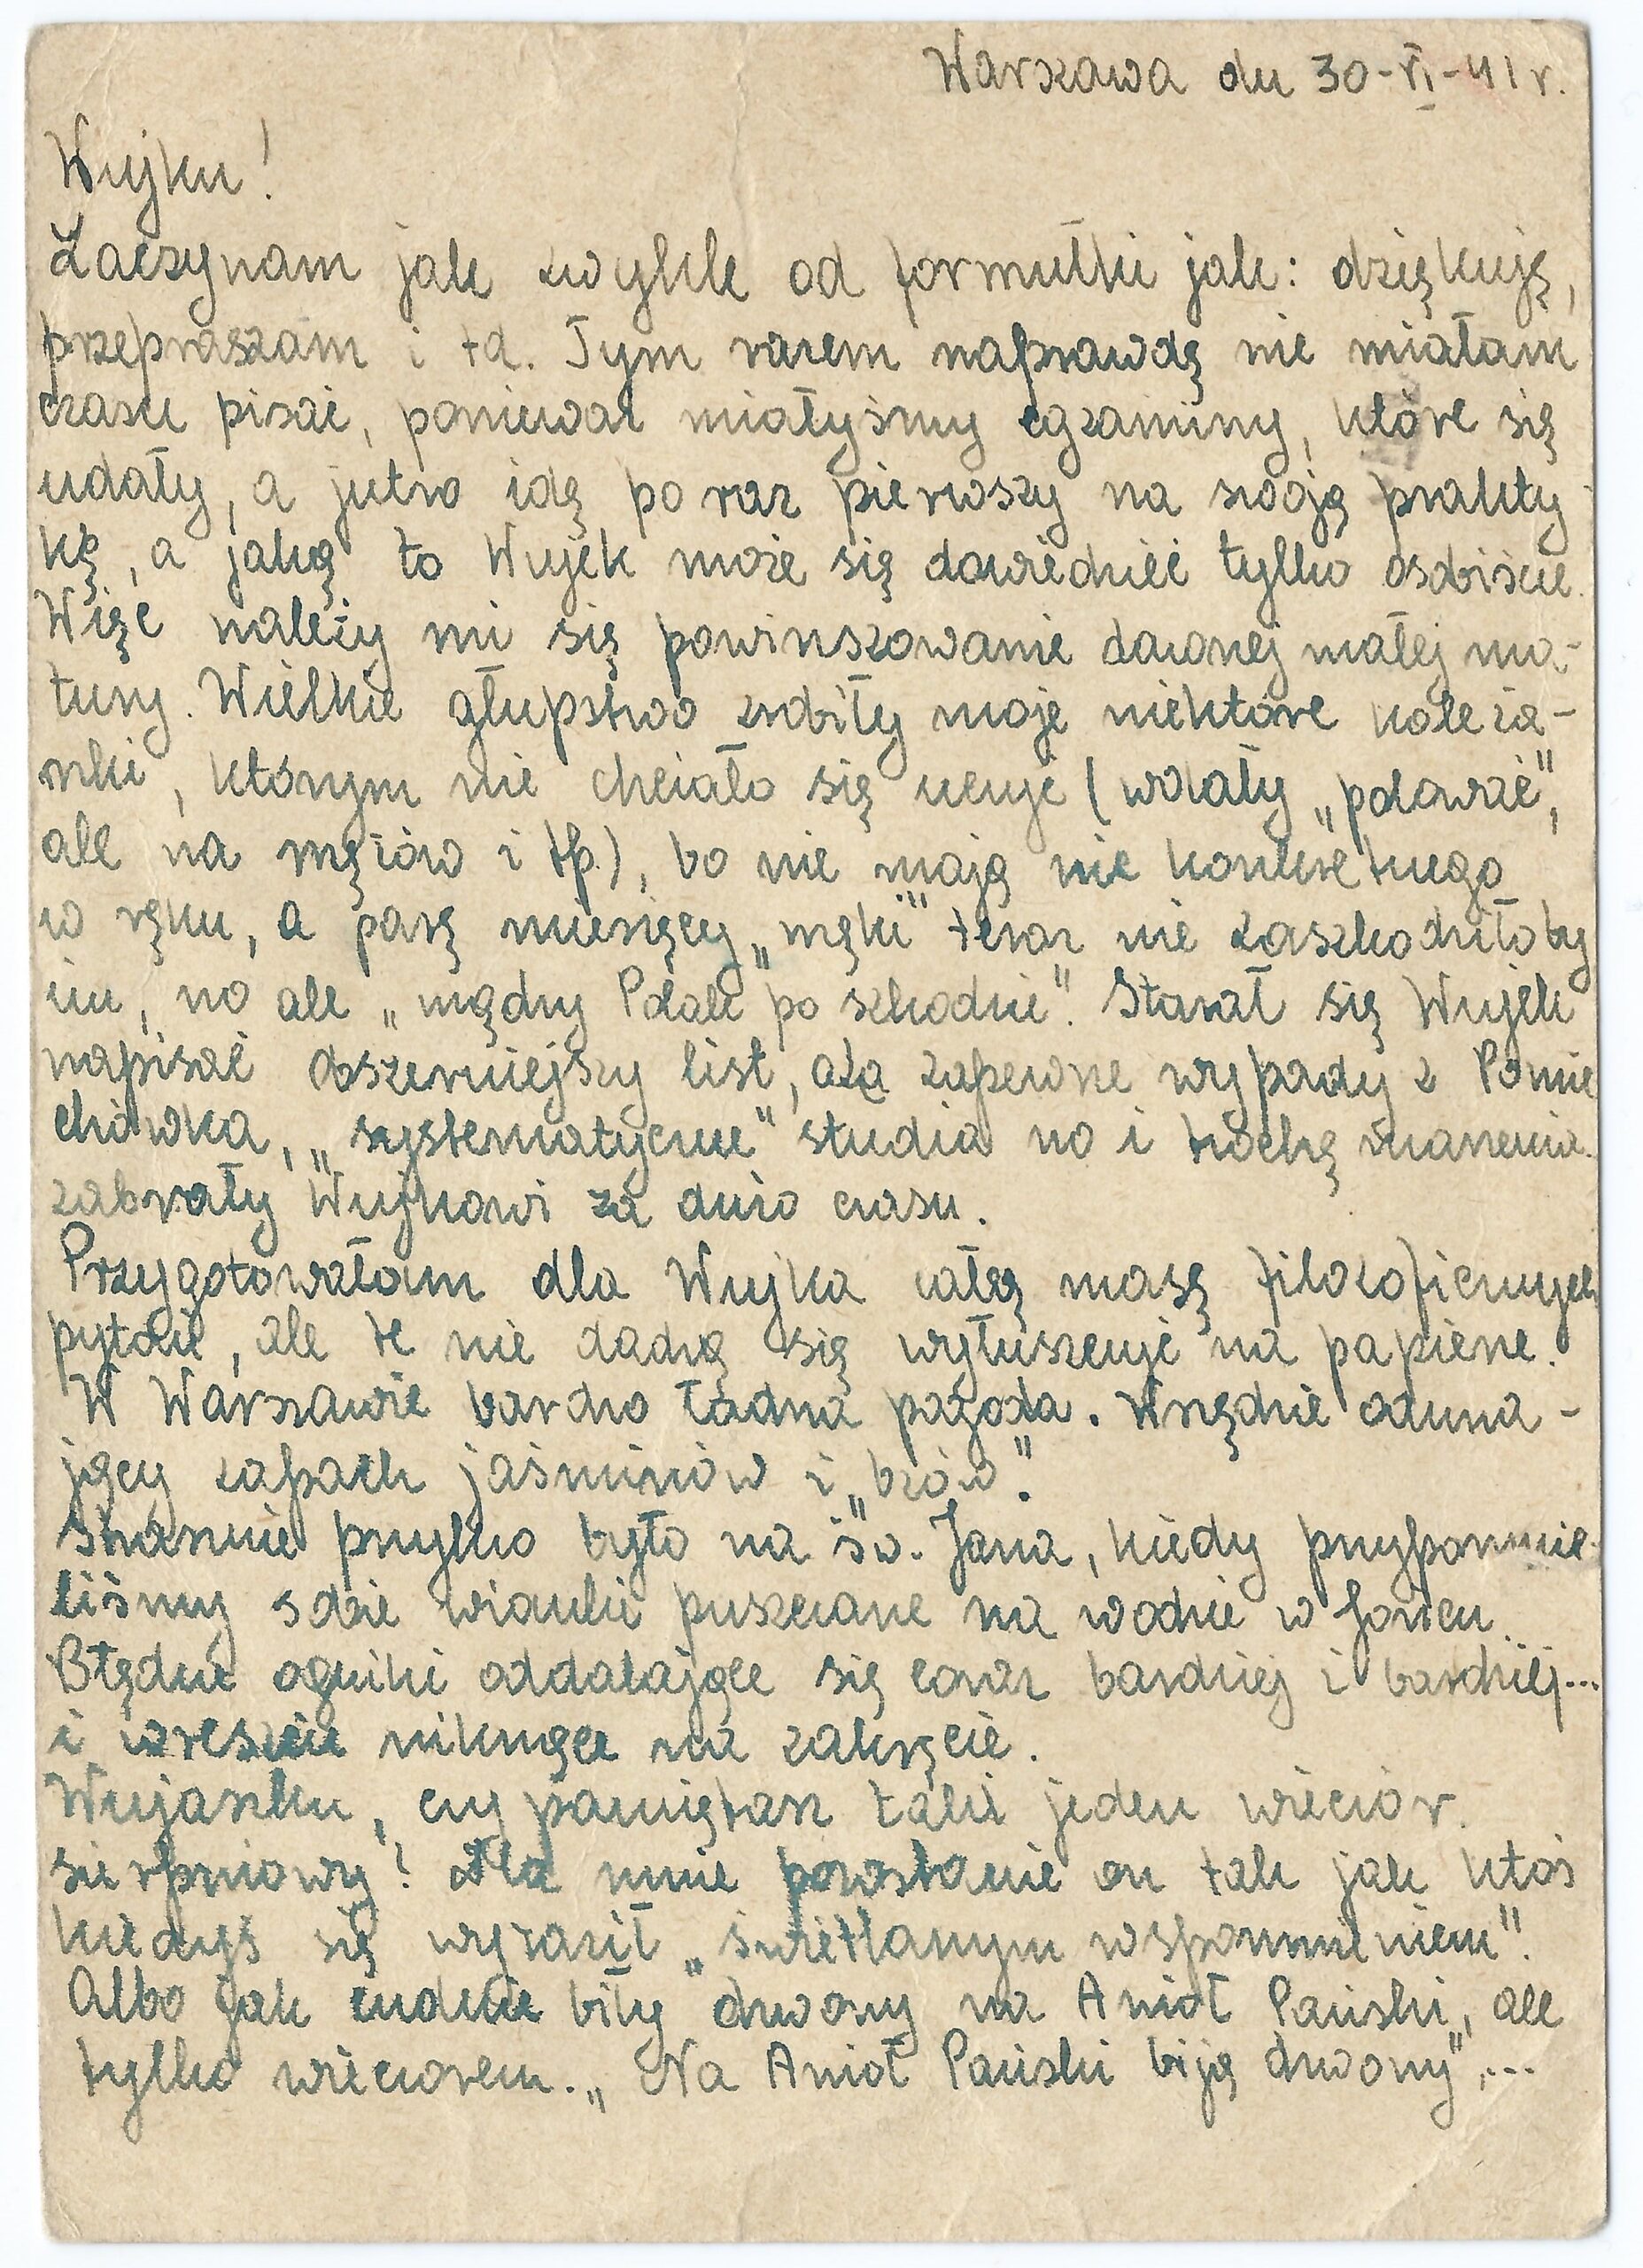 Warszawa dn 30-VI-41 r.
Wujku!
Zaczynam jak zwykle od formułki jak: dziękuję,
przepraszam i td. Tym razem naprawdę nie miałam
czasu pisać, ponieważ miałyśmy egzaminy, które się
udały, a jutro idę po raz pierwszy na swoją prakty-
kę, a jaką to Wujek może się dowiedzieć tylko osobiście.
Więc należy mi się powinszowanie dawnej małej ma-
tury. Wielkie głupstwo zrobiły moje niektóre koleża-
nki, którym nie chciało się uczyć (wolały „polować",
ale na mężów i tp.), bo nie mają nic konkretnego
w ręku, a parę miesięcy „męki" teraz nie zaszkodziłoby
im, no ale „mądry Polak po szkodzie". Starał się Wujek
napisać obszerniejszy list, zapewne wypady z Pomie
chówka, „systematyczne" studia no i trochę marzenia
zabrały Wujkowi za dużo czasu.
Przygotowałam dla Wujka całą masę filozoficznych
pytań, ale te nie dadzą się wyłuszczyć na papierze.
W Warszawie bardzo ładna pogoda. Wszędzie odurza-
jący zapach jaśminów i „bzów".
Strasznie przykro było na św. Jana, kiedy przypomnie-
liśmy sobie wianki puszczane na wodzie w Jońcu.
Błędne ogniki oddalające się coraz bardziej i bardziej...
i wreszcie niknące na zakręcie.
Wujaszku, czy pamiętasz taki jeden wieczór
sierpniowy? Dla mnie pozostanie on tak jak ktoś
kiedyś się wyraził „świetlanym wspomnieniem".
Albo jak cudnie biły dzwony na Anioł Pański, ale
tylko wieczorem. „Na Anioł Pański biją dzwony",...